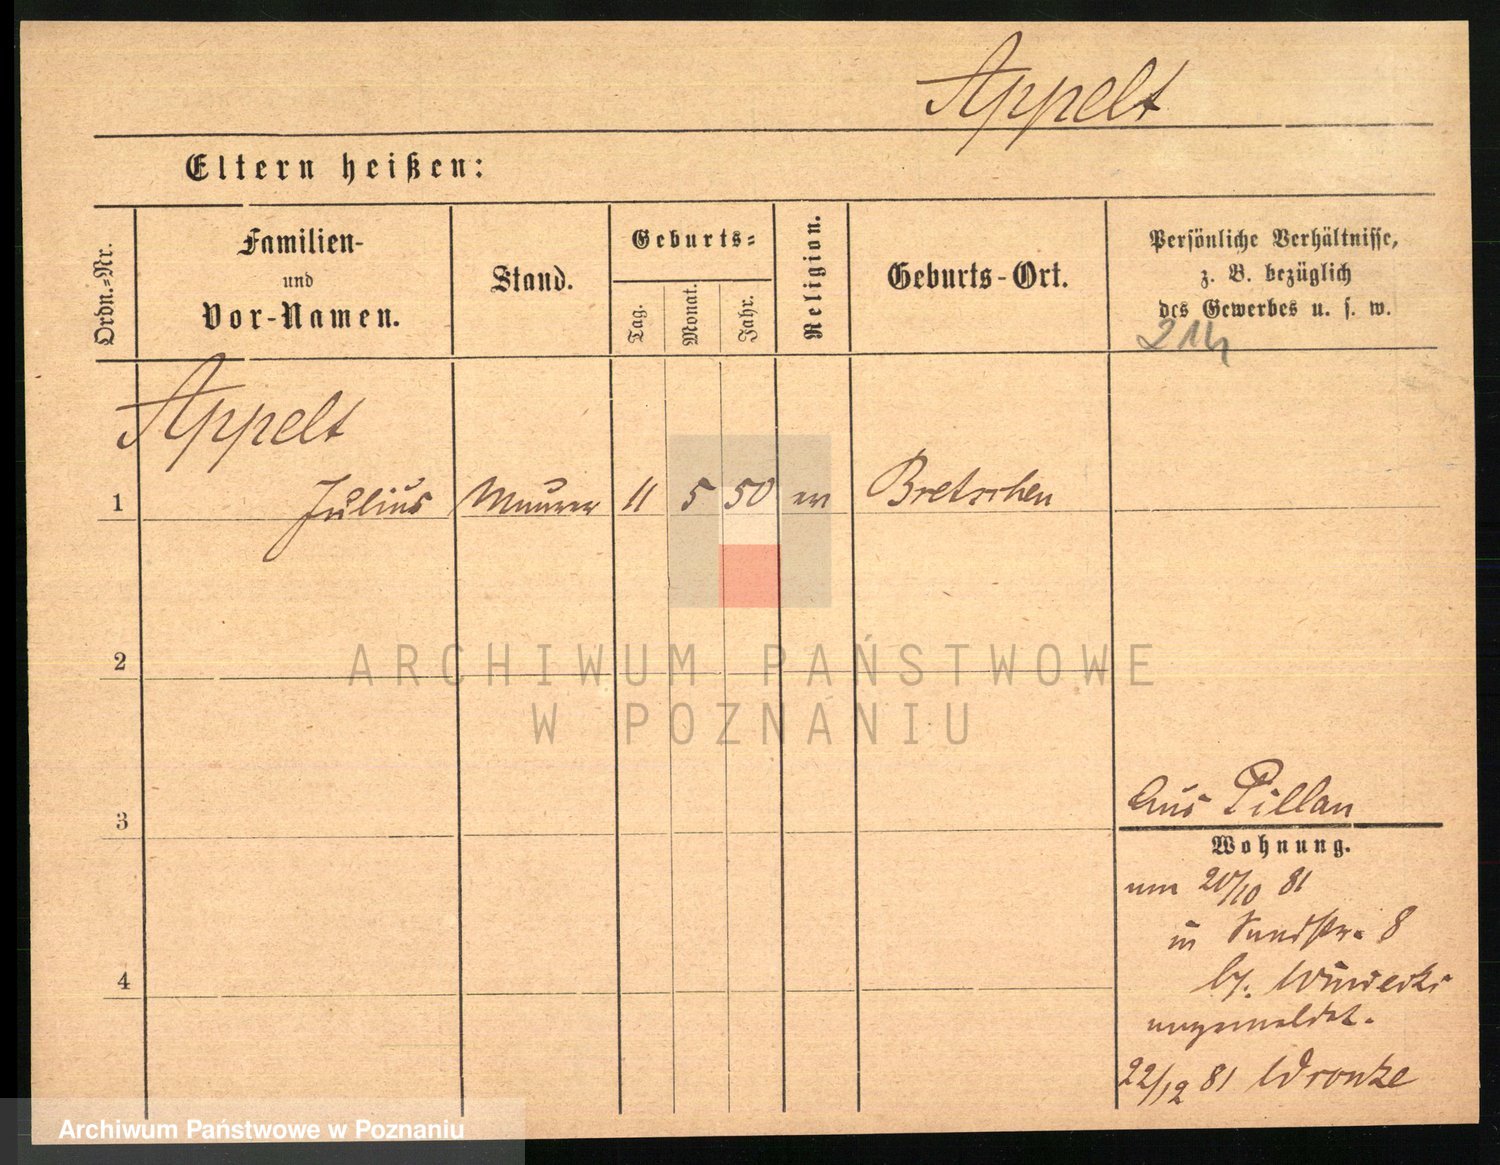 Appelt
Eltern heißen:
Ordn.-Nr.
Familien-
und
Vor-Namen.
Stand.
Geburts-
Tag.
Monat.
Jahr.
Religion.
Geburts-Ort.
Persönliche Verhältnisse,
z. B. bezüglich
des Gewerbes u. s. w.
214
Appelt
1 Julius Maurer 11 5 50 ev Bretschen
2
ARCHIWUM PAŃSTWOWE
W POZNANIU
3
Aus Pillau
Wohnung.
am 20/10 81
in Sandstr. 8
b/.
angemeldet.
4
22/12 81 Wronke
Archiwum Państwowe w Poznaniu